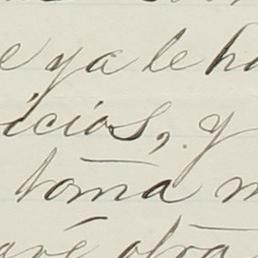 e ya le ha
icios, y
toma m
avé otra